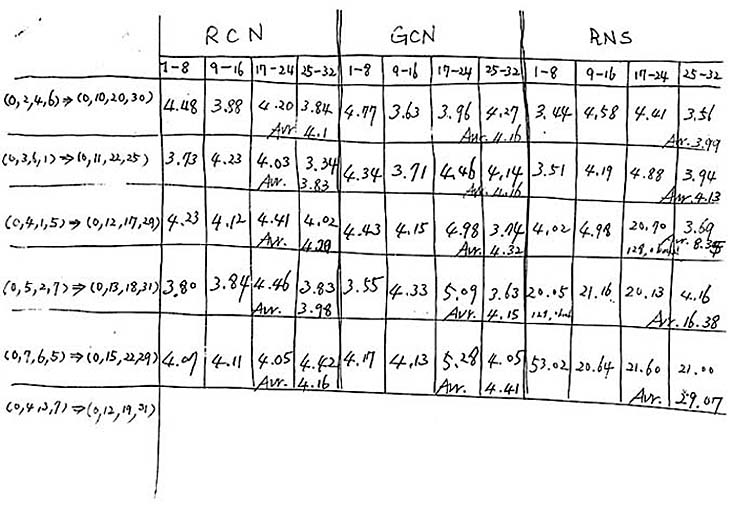 RCN GCN RNS
1-8 9-16 17-24 25-32 1-8 9-16 17-24 25-32 1-8 9-16 17-24 25-32
(0,2,4,6)⇒(0,10,20,30) 4.48 3.98 4.20 3.84 4.77 3.63 3.96 4.27 3.44 4.58 4.41 3.56
Avr. 4.1 Avr. 4.16 Avr. 3.99
(0,3,6,1)⇒(0,11,22,25) 3.73 4.23 4.03 3.34 4.34 3.71 4.46 4.14 3.51 4.19 4.88 3.94
Avr. 3.83 Avr. 4.16 Avr. 4.13
(0,4,1,5)⇒(0,12,17,29) 4.23 4.12 4.41 4.02 4.43 4.15 4.98 3.74 4.02 4.98 20.70 3.69
Avr. 4.20 Avr. 4.32 Avr. 8.35
(0,5,2,7)⇒(0,13,18,31) 3.80 3.84 4.46 3.83 3.55 4.33 5.09 3.63 20.05 21.16 20.13 4.16
Avr. 3.98 Avr. 4.15 Avr. 16.38
(0,7,6,5)⇒(0,15,22,29) 4.07 4.11 4.05 4.42 4.17 4.13 5.28 4.05 53.02 20.64 21.60 21.00
Avr. 4.16 Avr. 4.41 Avr. 29.07
(0,4,3,7)⇒(0,12,19,31)